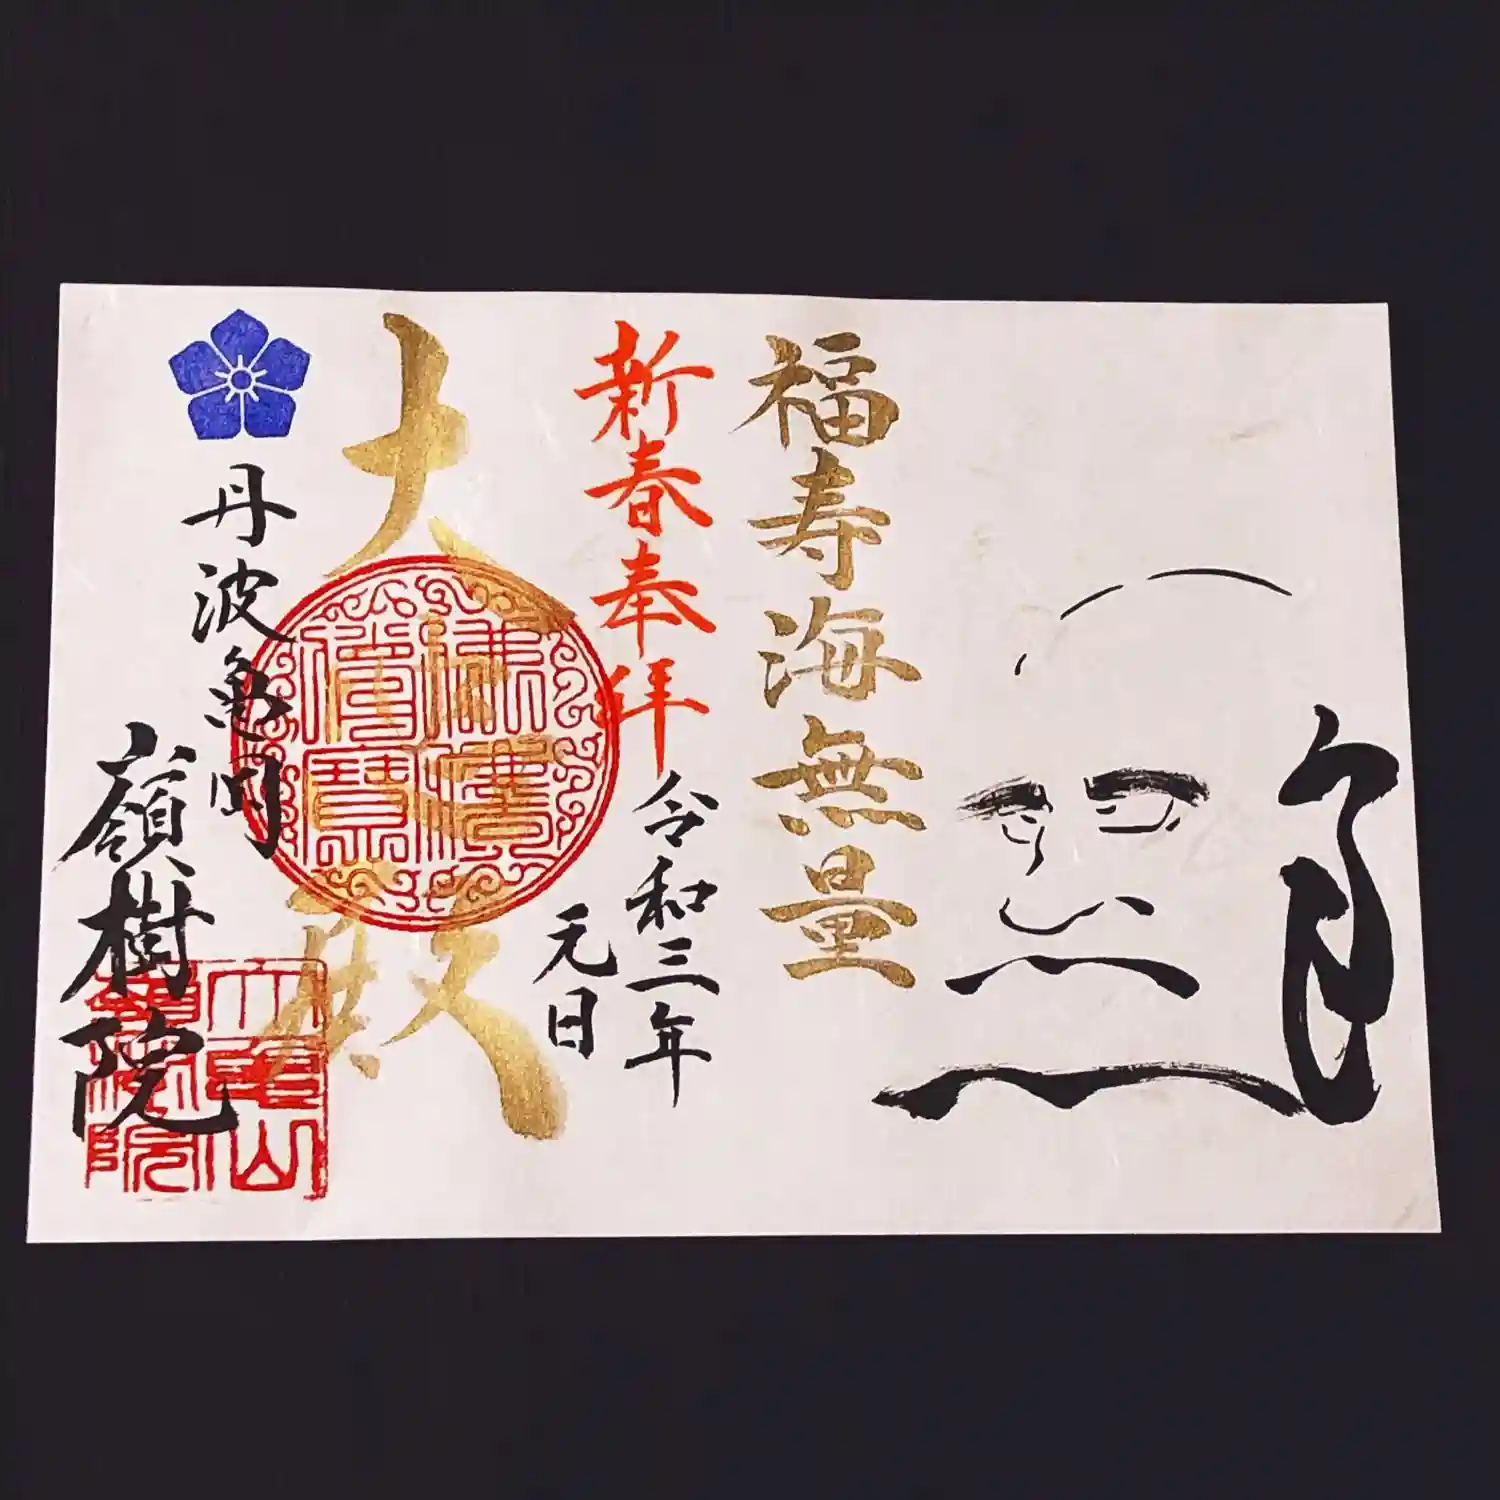 福寿海無量
新春奉拝
令和三年
元日
大
殿
佛法僧寶
丹波亀岡
嶺樹院
大亀山
嶺樹院